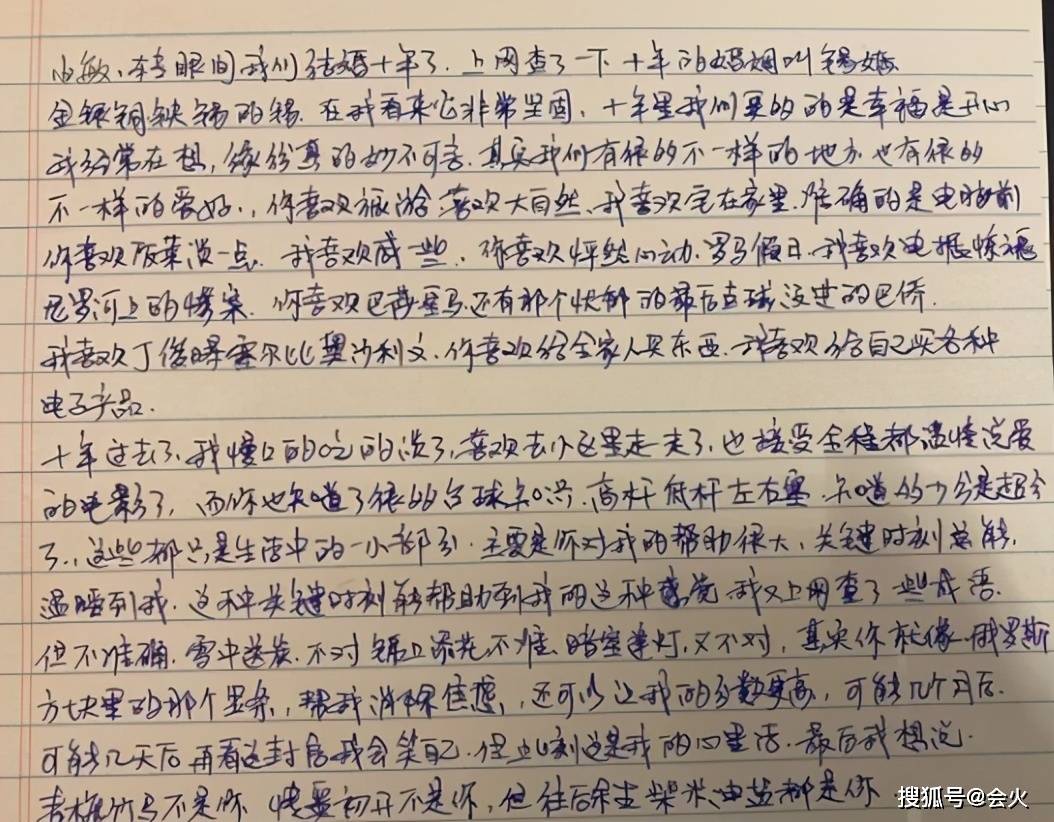 小敏、转眼间我们结婚十年了.上网查了一下十年的婚姻叫锡婚
金银铜铁锡的锡.在我看来它非常坚固,十年里我们更多的是幸福是开心
我经常在想,缘份真的妙不可言.其实我们有很多不一样的地方也有很多
不一样的爱好.,你喜欢旅游喜欢大自然、我喜欢宅在家里.准确的是电脑前
你喜欢饭菜淡一点.我喜欢咸一些、你喜欢怦然心动.罗马假日.我喜欢电锯惊魂
尼罗河上的惨案.你喜欢巴蒂罗马还有那个忧郁的最后点球没进的巴乔.
我喜欢丁俊晖塞尔比奥沙利文.你喜欢给全家人买东西.我喜欢给自己买各种
电子产品.
十年过去了,我慢慢的吃的淡了,喜欢去小区里走走了,也接受全程都温情说爱
的电影了,而你也知道了很多台球知识.高杆低杆左右塞.知道多少分是超分
了.,这些都只是生活中的一小部分.主要是你对我的帮助很大、关键时刻总能,
温暖到我.这种关键时刻能帮助到我的这种感觉.我又上网查了一些成语.
但不准确.雪中送炭.不对锦上添花,不准、暗室逢灯,又不对,其实你就像俄罗斯
方块里的那个竖条,帮我消除焦虑,还可以让我的分数更高,可能几个月后.
可能几天后再看这封信我会笑自己.但此刻这是我的心里话.最后我想说.
青梅竹马不是你 情窦初开不是你,但往后余生柴米油盐都是你
搜狐号@会火